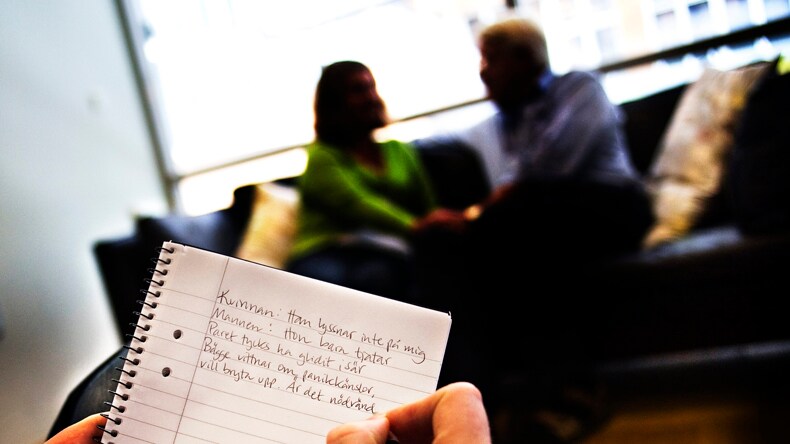 Kvinnan: Han lyssnar inte på mig
Mannen: Hon bara tjatar
Paret tycks ha glidit isär
Bägge vittnar om panikkänslor,
vill bryta upp. Är det nödvänd